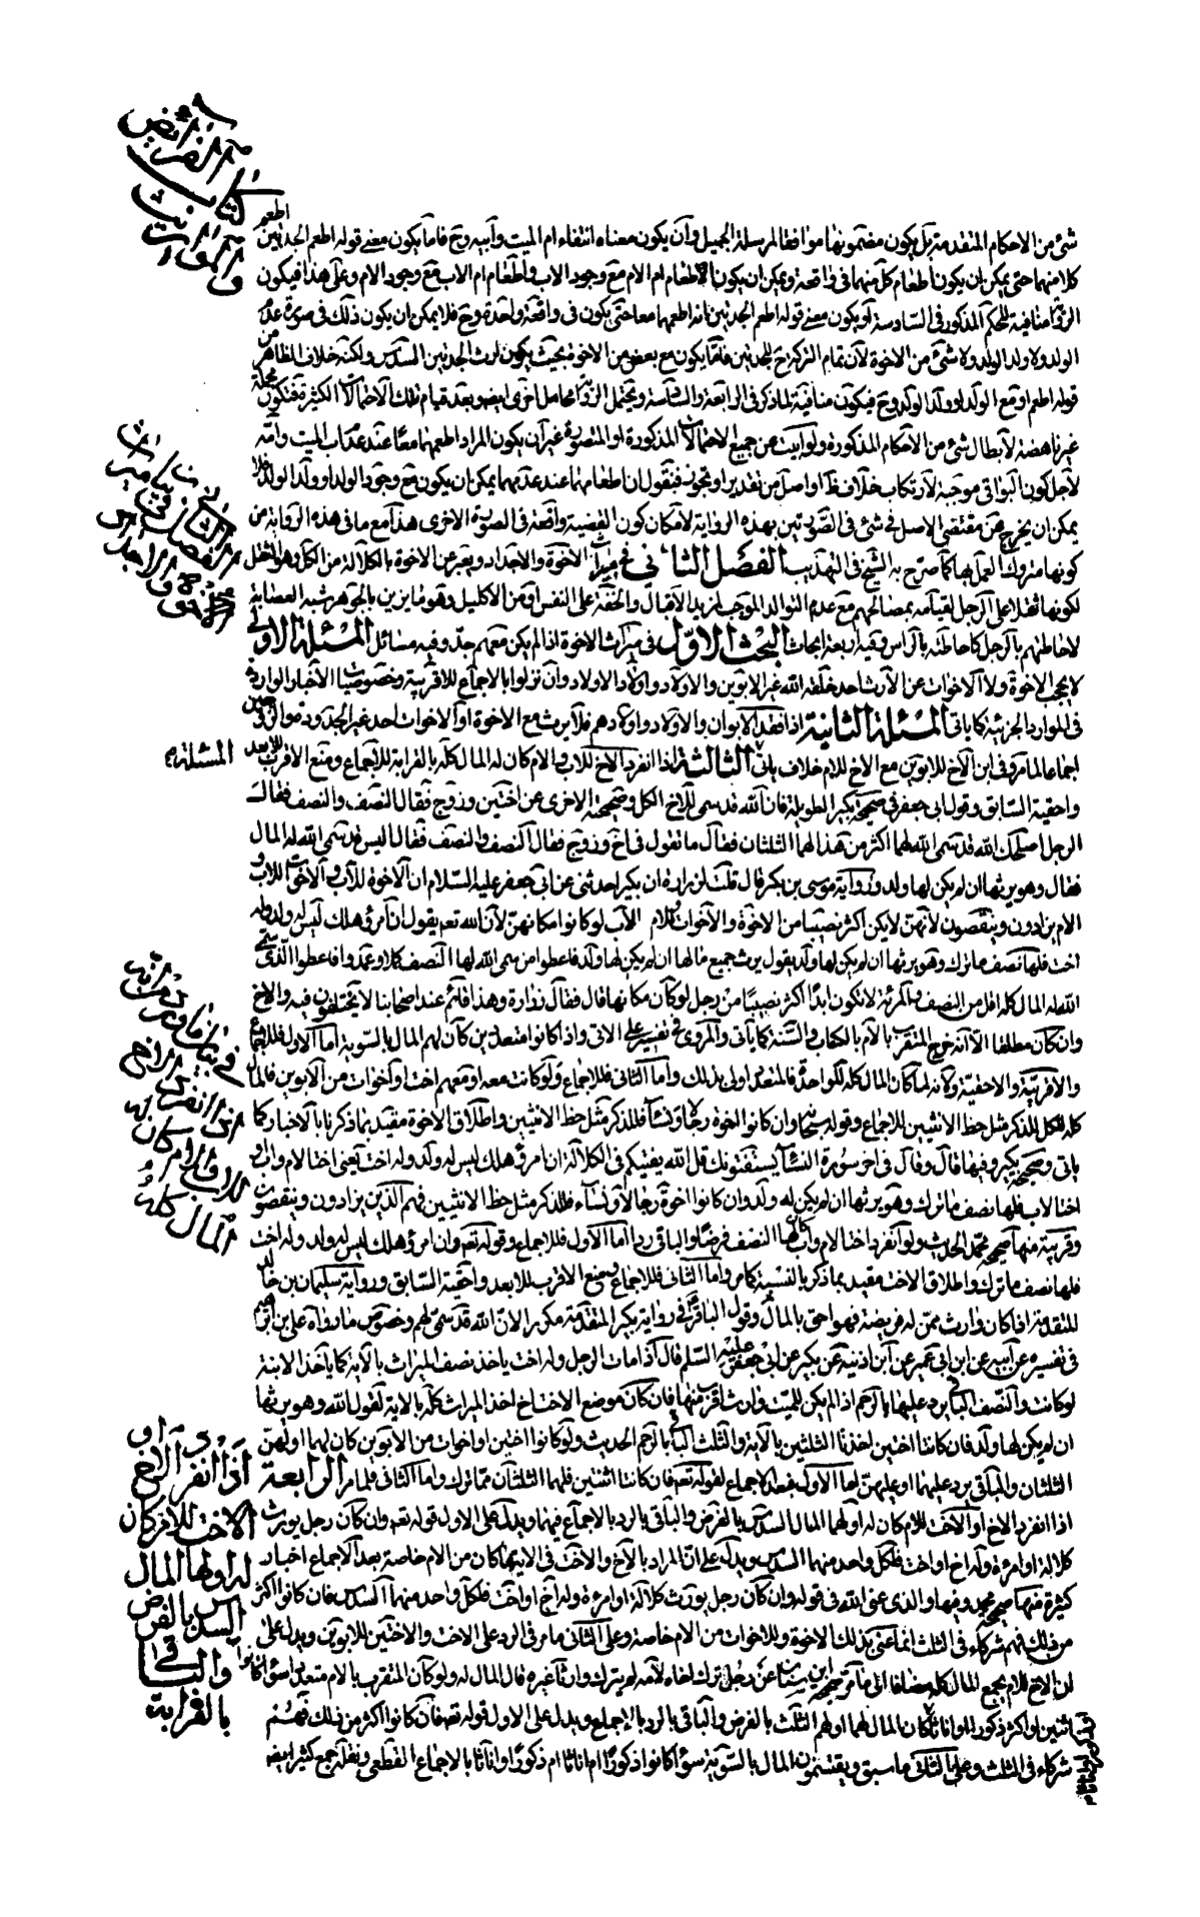 كتاب الفرائض
والمواريث
شئ من الاحكام المتقدمة بل يكون مضمونها موافقا لمرسلة الجميل وان يكون معناه انتفاء ام الميت وابيه وح فاما يكون معنى قوله اطعم الجدتين
كلا منهما حتى يمكن ان يكون اطعام كل منهما في واقعة ويمكن ان يكون الاطعام لام الام مع وجود الاب واطعام ام الاب مع وجود الام وعلى هذا فيكون
منافية للحكم المذكور في السادسة او يكون معنى قوله اطعم الجدتين انه اطعمهما معا حتى يكون في واقعة واحدة وح فلا يمكن ان يكون ذلك في صورة عدم
الولد ولا ولد الولد ولا شئ من الاخوة لان تمام التركة ح للجدتين فاما يكون مع بعض من الاخوة بحيث يكون لارث الجدتين السدس ولكنه خلاف الظاهر من
قوله اطعم او مع الولد او ولد الولد وح فيكون منافية لما ذكر في الرابعة والخامسة ويحتمل الرواية محامل اخرى ايضا وبعد قيام تلك الاحتمالات الكثيرة فتكون مجملة
غير ناهضة لابطال شئ من الاحكام المذكورة ولو ابيت عن جميع الاحتمالات المذكورة او المتصورة غير ان يكون المراد اطعمهما معا عند عدم اب الميت وامه
لاجل كون البواقي موجبة لارتكاب خلاف ظاهر او اصل من تقدير او تجوز فنقول ان اطعامهما عند عدمهما يمكن ان يكون مع وجود الولد او ولد الولد فلا
يمكن ان يخرج عن مقتضى الاصل في شئ في الصورتين بهذه الرواية لامكان كون القضية واقعة في الصورة الاخرى هذا مع ما في هذه الرواية من
كونها متروك العمل بها كما صرح به الشيخ في التهذيب الفصل الثاني في ميراث الاخوة والاجداد ويعبر عن الاخوة بالكلالة من الكل وهو الثقل
لكونها ثقلا على الرجل لقيامه بمصالحهم مع عدم التوالد الموجب لمزيد الاقبال والخفة على النفس او من الاكليل وهو ما يزين بالجوهر شبه العصابة
لاحاطتهم بالرجل كاحاطته بالراس وفيه اربعة ابحاث البحث الاول في ميراث الاخوة اذا لم يكن معهم جد وفيه مسائل المسئلة الاولى
لا يحجب الاخوة ولا الاخوات عن الارث احد خلقه الله غير الابوين والاولاد واولاد الاولاد وان نزلوا بالاجماع للاقربية وخصوصيات الاخبار الواردة
في الموارد الجزئية كما ياتي المسئلة الثانية اذا فقد الابوان والاولاد واولادهم فلا يرث مع الاخوة او الاخوات احد غير الجدودة والزوجين
اجماعا لما مر وفي ابن الاخ للابوين مع الاخ للام خلاف ياتي الثالثة اذا انفرد الاخ للاب والام كان له المال كله بالقرابة للاجماع ومنع الاقرب للابعد
المسئلة
واحقية السابق وقول ابي جعفر في صحيحة بكير الطويلة فان الله قد سمى للاخ الكل وصحيحته الاخرى عن اختين وزوج فقال النصف والنصف فقال
الرجل اصلحك الله قد سمى الله لهما اكثر من هذا لهما الثلثان فقال ما تقول في اخ وزوج فقال النصف والنصف فقال اليس قد سمى الله له المال
فقال وهو يرثها ان لم يكن لها ولد ورواية موسى بن بكر قال قلت لزرارة ان بكيرا حدثني عن ابي جعفر عليه السلام ان الاخوة للاب والاخوات للاب و
الام يزادون وينقصون لانهن لا يكن اكثر نصيبا من الاخوة والاخوات للاب والام لو كانوا مكانهن لان الله تعالى يقول ان امرؤ هلك ليس له ولد وله
اخت فلها نصف ما ترك وهو يرثها ان لم يكن لها ولد يقول يرث جميع مالها ان لم يكن لها ولد فاعطوا من سمى الله لها النصف كملا وعمدوا فاعطوا الذي سمى
الله له المال كله اقل من النصف والمرئة لا تكون ابدا اكثر نصيبا من رجل لو كان مكانها قال فقال زرارة وهذا قائم عند اصحابنا لا يختلفون فيه والاخ
وان كان مطلقا الا انه خرج المتقرب بالام بالكتاب والسنة كما ياتي والمروي في تفسير علي الاتي واذا كانوا متعددين كان لهم المال بالسوية اما الاول فللاجماع
والاقربية والاحقية ولانه لما كان المال كله لكل واحد فالمتعدد اولى بذلك واما الثاني فللاجماع ولو كانت معه او معهم اخت او اخوات من الابوين فالمال
كله للكل للذكر مثل حظ الانثيين للاجماع وقوله سبحانه وان كانوا اخوة رجالا ونساء فللذكر مثل حظ الانثيين واطلاق الاخوة مقيد بما ذكرنا بالاخبار كما
ياتي وصحيحة بكير وفيها قال وقال في اخر سورة النساء يستفتونك قل الله يفتيكم في الكلالة ان امرؤ هلك ليس له ولد وله اخت يعني اختا لام واب او
اختا لاب فلها نصف ما ترك وهو يرثها ان لم يكن له ولد وان كانوا اخوة رجالا ونساء فللذكر مثل حظ الانثيين فهم الذين يزادون وينقصون
وقريبة منها صحيحة محمد الحديث ولو انفرد اختا لام واب كان لها النصف فرضا والباقي ردا اما الاول فللاجماع وقوله تعالى وان امرؤ هلك ليس له ولد وله اخت
فلها نصف ما ترك واطلاق الاخت مقيد بما ذكر بالنسبة كما مر واما الثاني فللاجماع ومنع الاقرب للابعد واحقية السابق ورواية سليمان بن خالد
المتقدمة اذا كان وارث ممن له فريضة فهو احق بالمال وقول الباقر في رواية بكير المتقدمة مكررا لان الله قد سمى لهم وخصوص ما رواه علي بن ابراهيم
في تفسيره عن ابيه عن ابن ابي عمير عن ابن اذينة عن بكير عن ابي جعفر عليه السلم قال اذا مات الرجل وله اخت ياخذ نصف الميراث بالاية كما ياخذ الابنة
لو كانت والنصف الباقي يرد عليها بالرحم اذا لم يكن للميت وارث اقرب منها فان كان موضع الاخت اخ اخذ الميراث كله بالاية لقول الله وهو يرثها
ان لم يكن لها ولد فان كانتا اختين اخذتا الثلثين بالاية والثلث الباقي بالرحم الحديث ولو كانوا اختين او اخوات من الابوين كان لهما او لهن
الثلثان والباقي يرد عليهما او عليهن اما الاول فبعد الاجماع لقوله تعالى فان كانتا اثنتين فلهما الثلثان مما ترك واما الثاني فلما مر الرابعة
اذا انفرد الاخ او الاخت للام كان له او لها المال السدس بالفرض والباقي بالرد بالاجماع فيهما ويدل على الاول قوله تعالى وان كان رجل يورث
كلالة او امرءة وله اخ او اخت فلكل واحد منهما السدس ويدل على ان المراد بالاخ والاخت في الاية ما كان من الام خاصة بعد الاجماع اخبار
كثيرة منها صحيحة محمد وفيها والذي عنى الله في قوله وان كان رجل يورث كلالة او امرءة وله اخ او اخت فلكل واحد منهما السدس فان كانوا اكثر
من ذلك فهم شركاء في الثلث انما عنى بذلك الاخوة والاخوات من الام خاصة وعلى الثاني ما مر في الرد على الاخت والاختين للابوين ويدل على
ان الاخ للام يجمع المال كله مضافا الى ما مر صحيحة ابن سنان عن رجل ترك اخاه لامه لم يترك وارثا غيره قال المال له ولو كان المتقرب بالام متعددا سواء كانوا
اثنين او اكثر ذكورا او اناثا كان المال لهما او لهم الثلث بالفرض والباقي بالرد بالاجماع ويدل على الاول قوله تعالى فان كانوا اكثر من ذلك فهم
شركاء في الثلث وعلى الثاني ما سبق ويقتسمون المال بالسوية سواء كانوا ذكورا ام اناثا ام ذكورا واناثا بالاجماع القطعي ونقله جمع كثير ايضا
الفصل الثاني في ميراث
الاخوة والاجداد
اذا انفرد الاخ
للاب والام كان له
المال كله
اذا انفرد الاخ او
الاخت للام كان
له او لها المال
السدس بالفرض
والباقي
بالقرابة